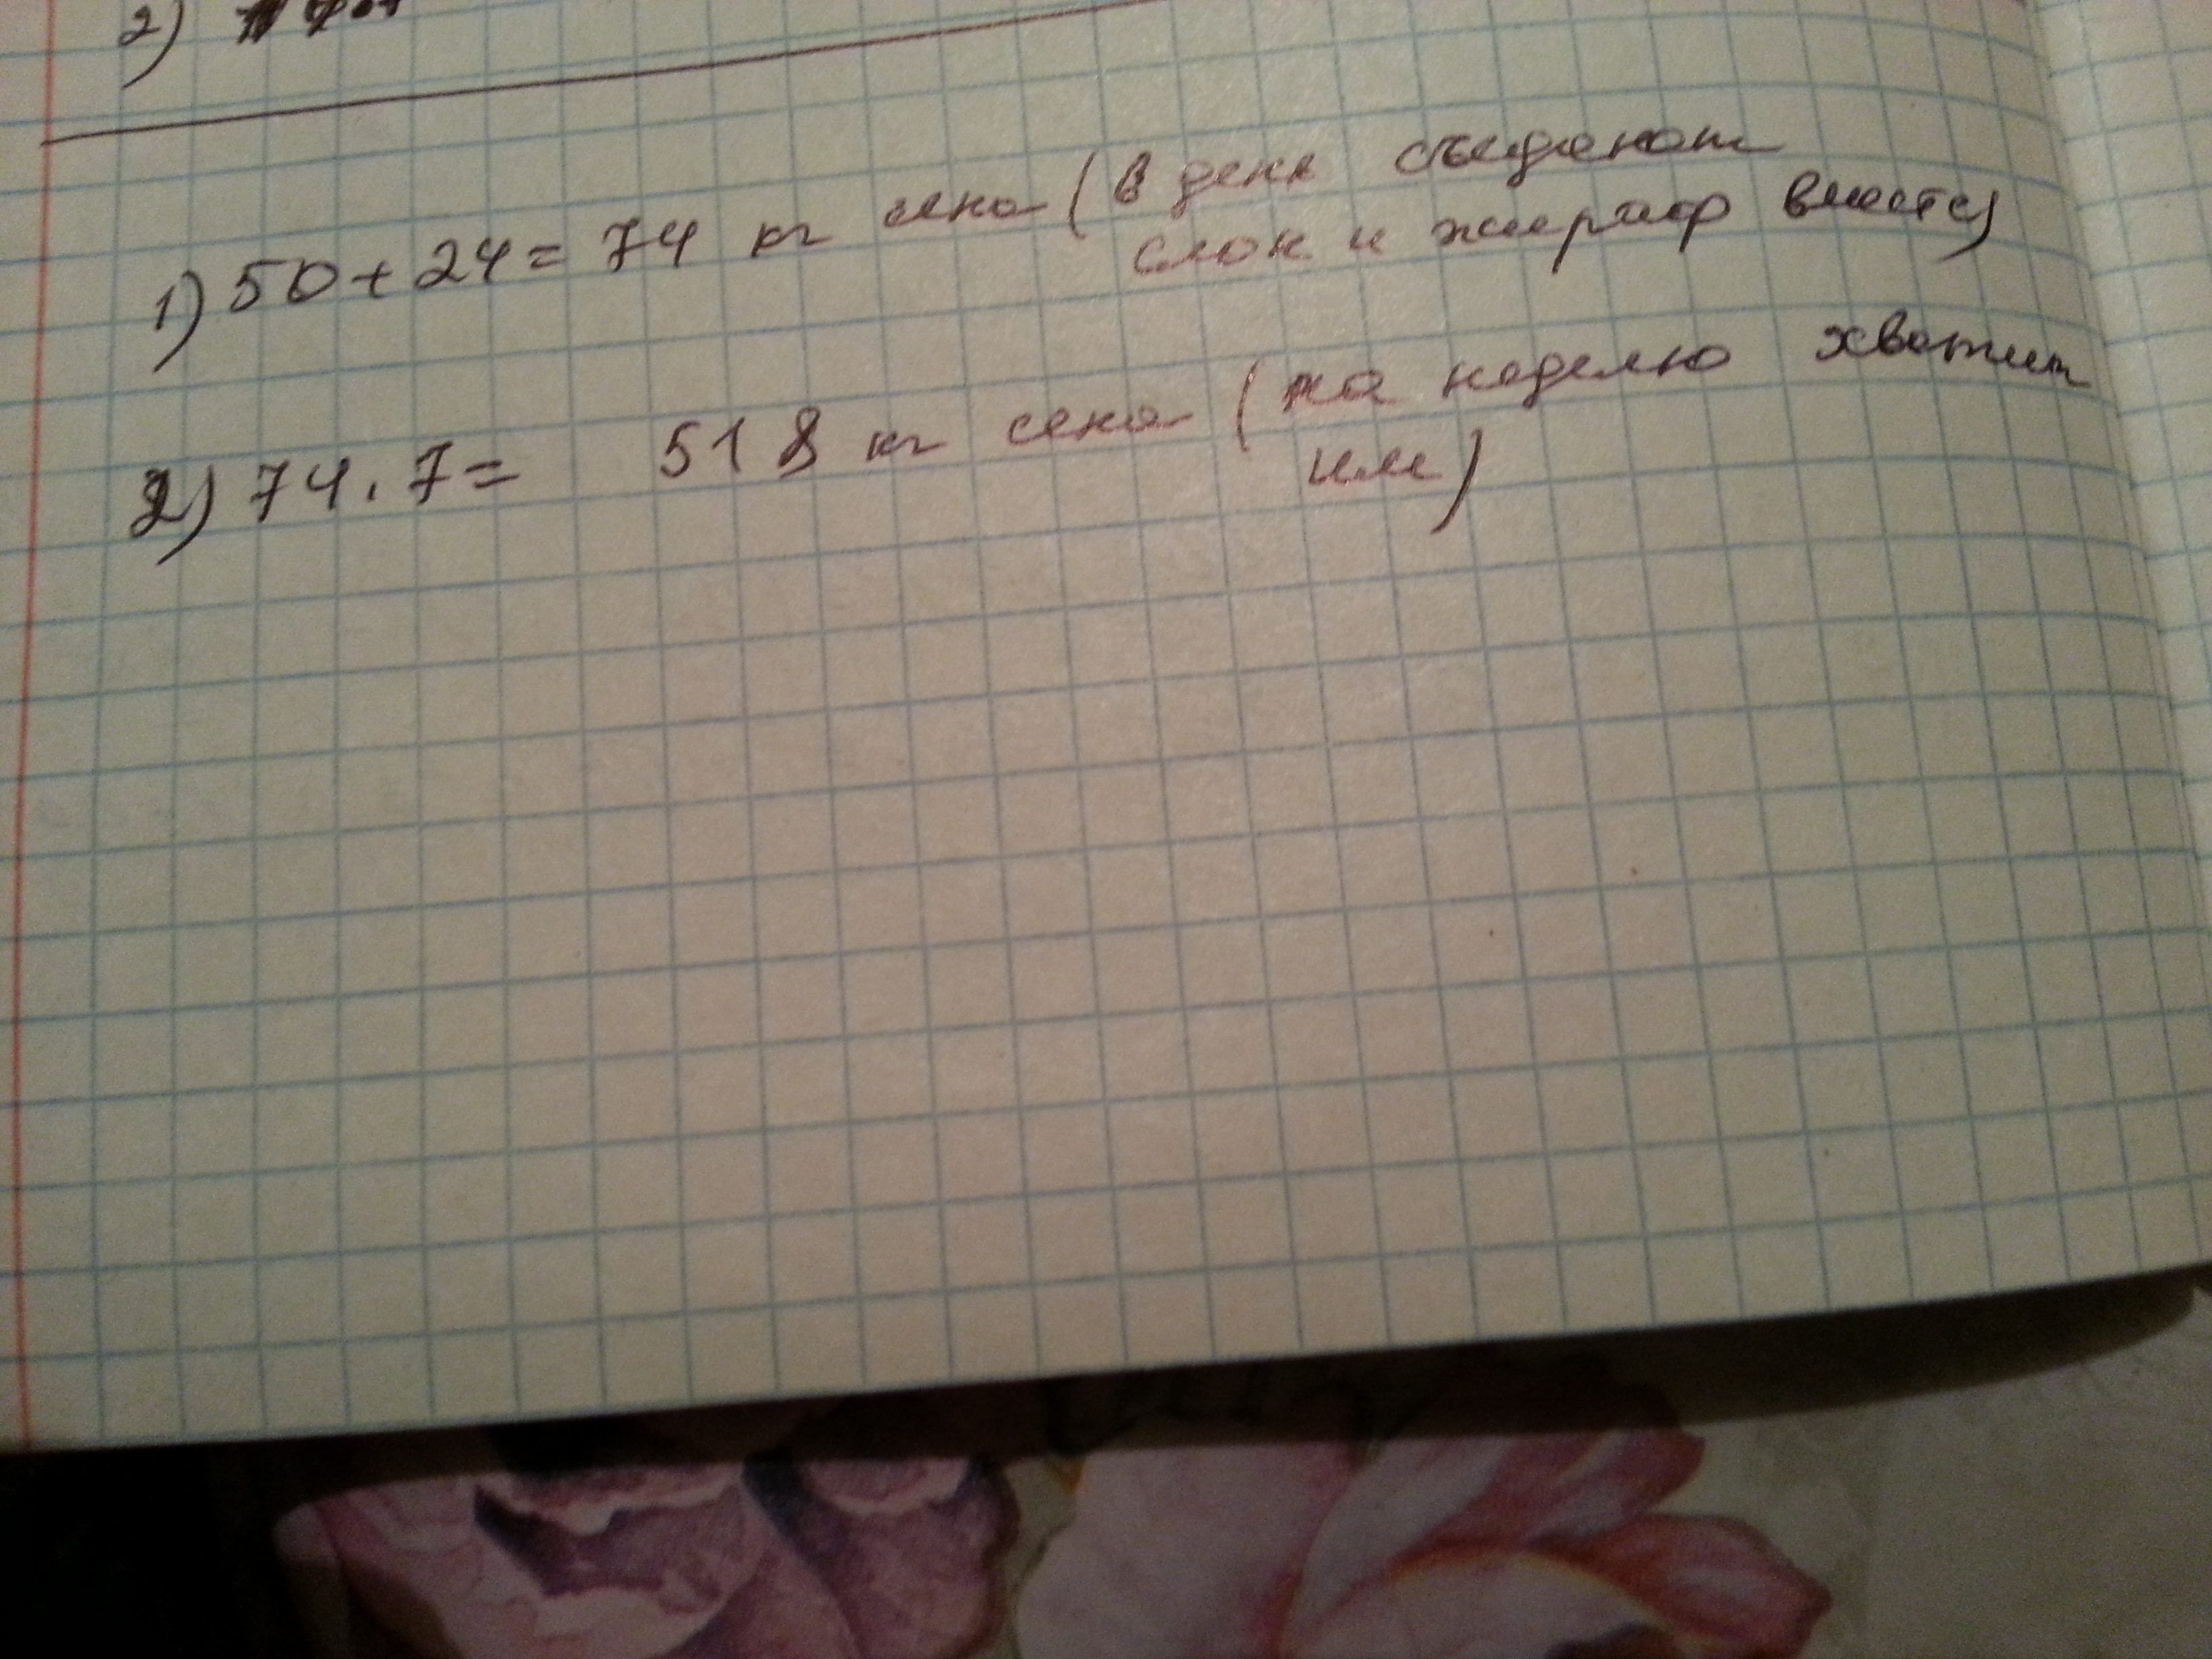 2)
1) 50 + 24 = 74 кг сена (в день съедают
слон и жираф вместе)
2) 74 . 7 = 518 кг сена (на неделю хватит
им)